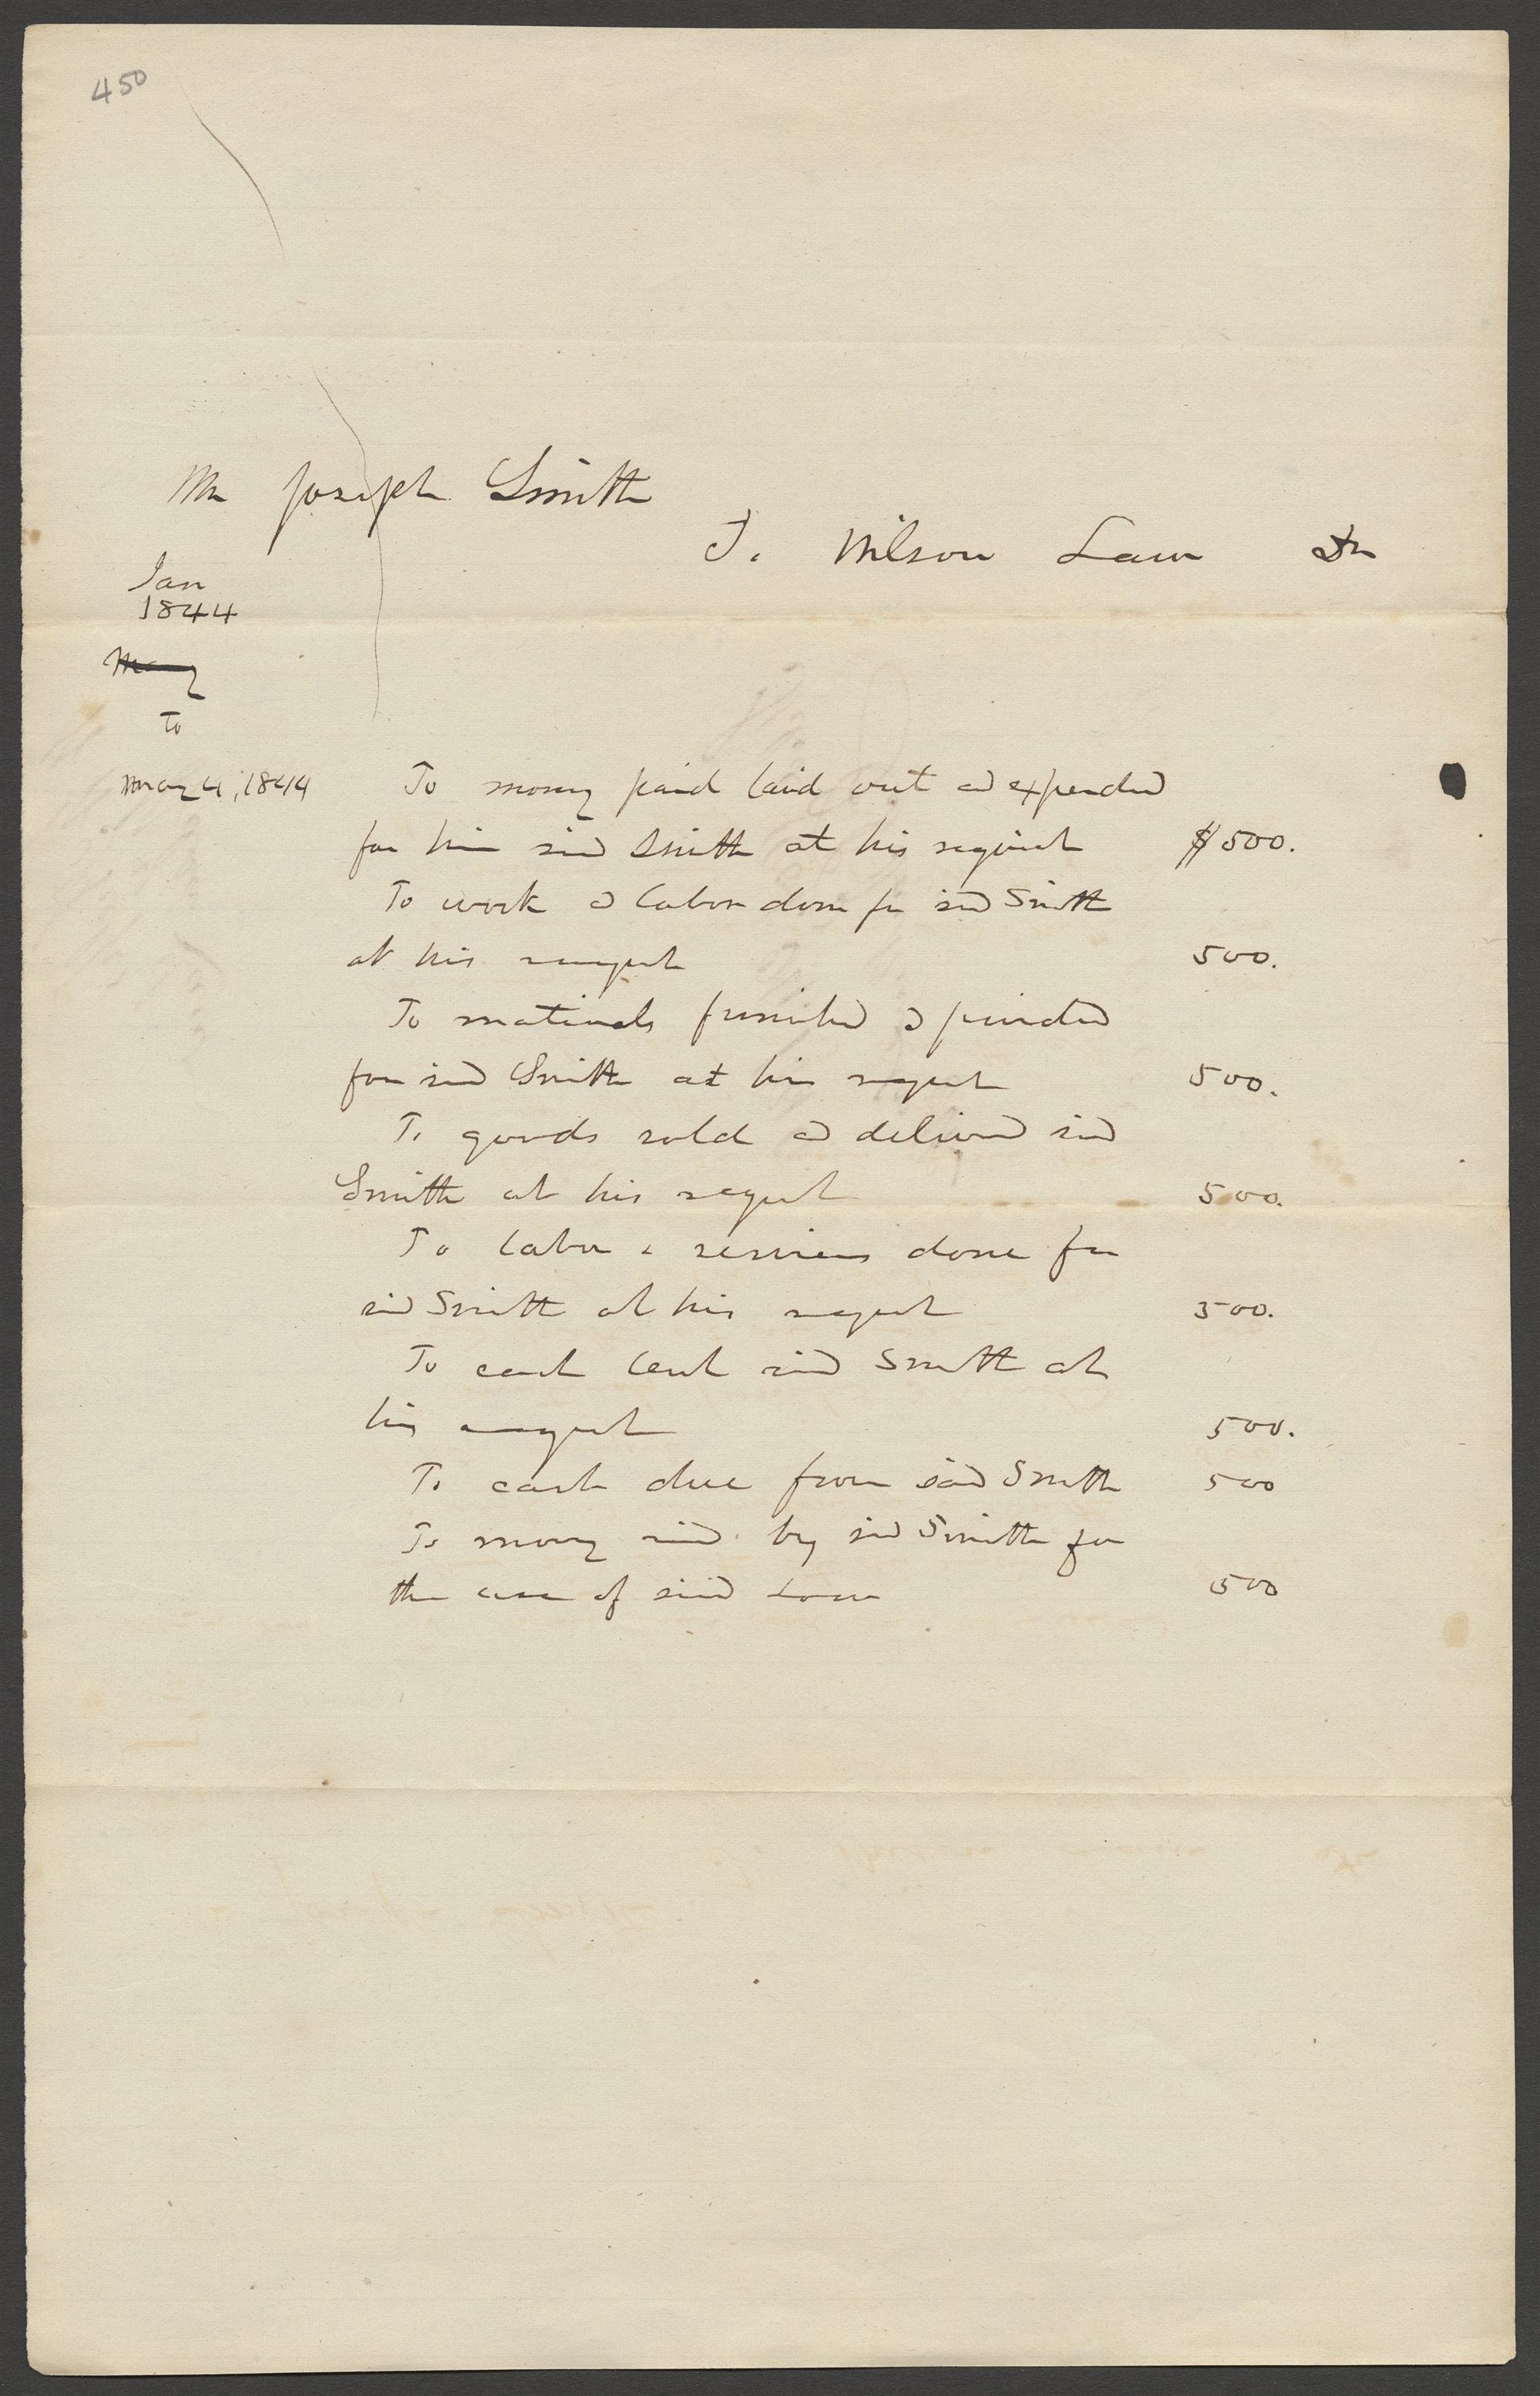 450
Mr Joseph Smith
To Wilson Law Dr
Jan
1844
May
To
May 4, 1844 To money paid laid out and expended
for him said Smith at his request $500.
To work & labor done for said Smith
at his request 500.
To materials furnished & provided
for said Smith at his request 500.
To goods sold and delivered said
Smith at his request 500.
To labor & services done for
said Smith at his request 500.
To cash lent said Smith at
his request 500.
To cash due from said Smith 500
To money by said Smith for
the use of said Law 500